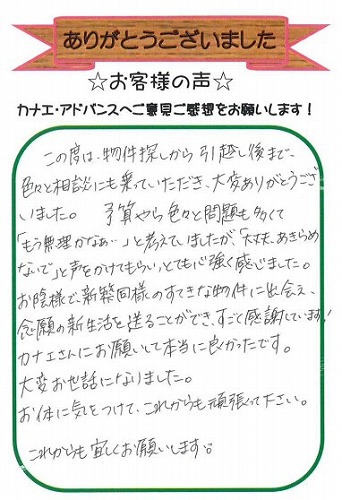 ありがとうございました
☆お客様の声☆
カナエ・アドバンスへご意見ご感想をお願いします！
この度は、物件探しから引越し後まで、
色々と相談にも乗っていただき、大変ありがとうござ
いました。 予算やら色々と問題も多くて
「もう無理かなぁ…」と考えていましたが、「大丈夫、あきらめ
ないで」と声をかけてもらい、とても心強く感じました。
お陰様で、新築同様のすてきな物件に出会え、
念願の新生活を送ることができ、すごく感謝しています！
カナエさんにお願いして本当に良かったです。
大変お世話になりました。
お体に気をつけて、これからも頑張って下さい。
これからも宜しくお願いします。